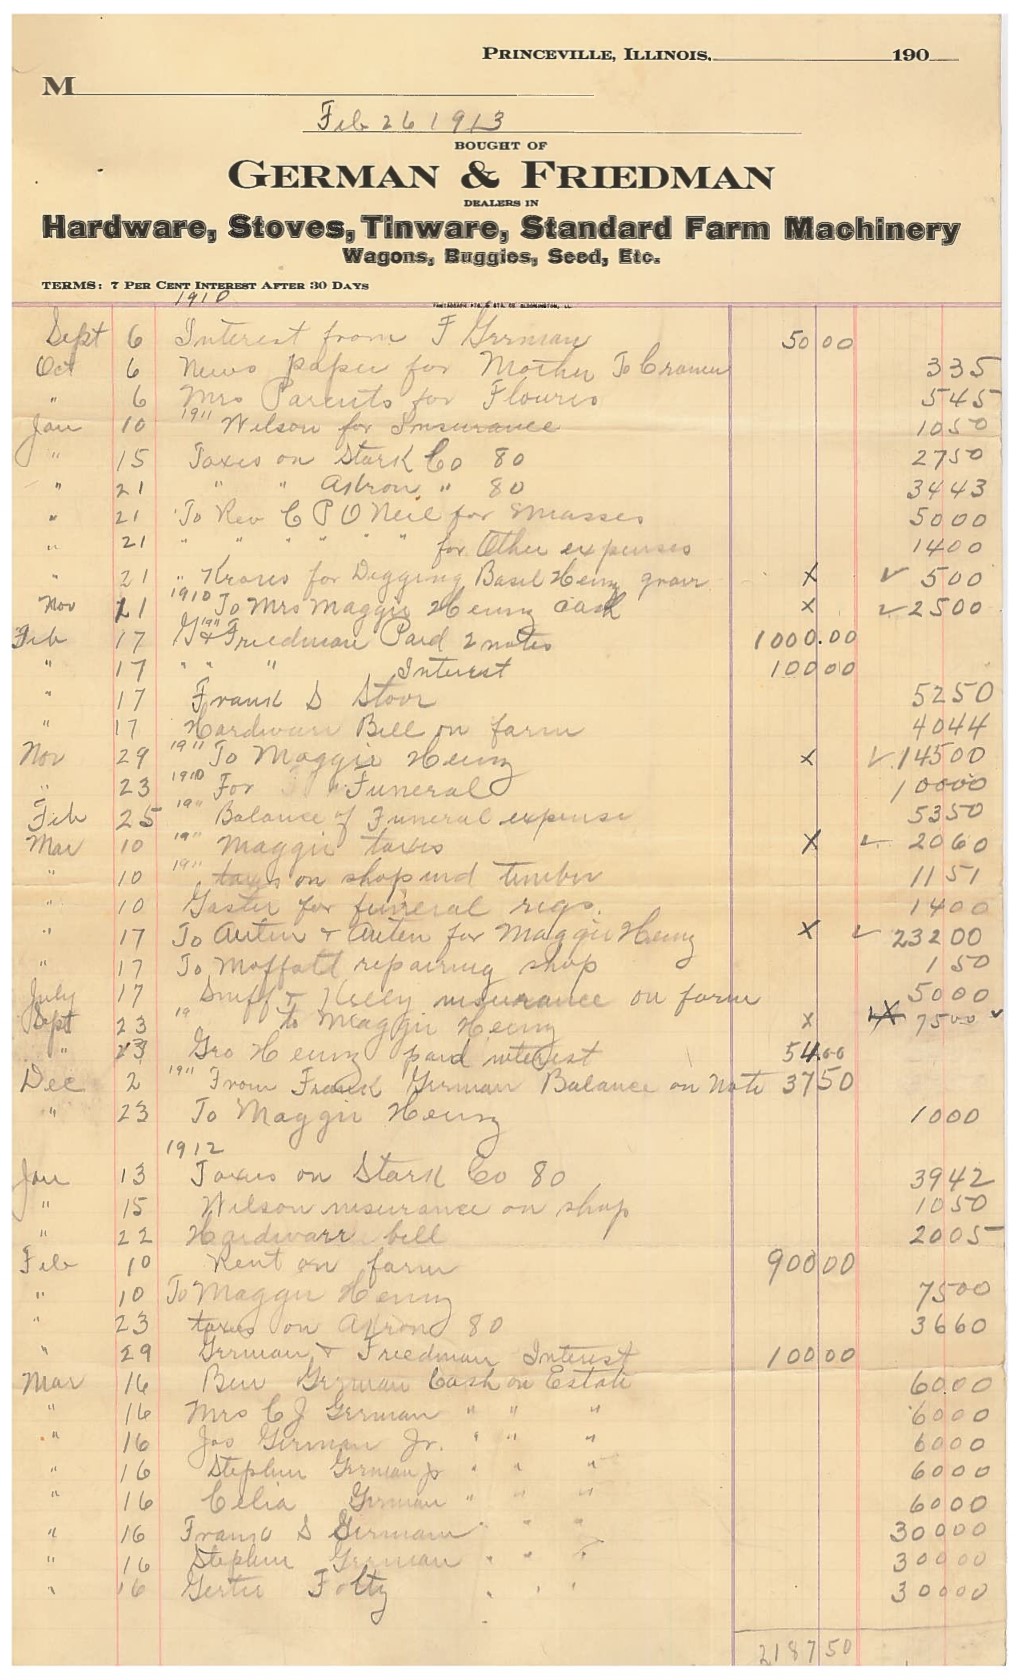 PRINCEVILLE, ILLINOIS, 190
M
Feb 26 1913
BOUGHT OF
GERMAN & FRIEDMAN
DEALERS IN
Hardware, Stoves, Tinware, Standard Farm Machinery
Wagons, Buggies, Seed, Etc.
TERMS: 7 PER CENT INTEREST AFTER 30 DAYS
1910
Sept 6 Interest from F German 50 00
Oct 6 News paper for Mother To Cramer 3 35
" 6 Mrs Parents for Floures 5 45
Jan 10 1911 Wilson for Insurance 10 50
" 15 Taxes on Stark Co 80 27 50
" 21 " " " 80 34 43
" 21 To Rev C P O Neil for Masses 50 00
" 21 " " " " " for Other expenses 14 00
" 21 " for Digging Basil Henry grave X ✓ 5 00
Nov 21 1910 To Mrs Maggie Henry Cash X ✓ 25 00
Feb 17 1911 G & Friedman Paid 2 notes 1000.00
" 17 " " " Interest 100 00
" 17 Frank S Stoor 52 50
" 17 Hardware Bill on farm 40 44
Nov 29 1911 To Maggie Henry X ✓ 145 00
" 23 1910 For Funeral 100 00
Feb 25 1911 Balance of Funeral expense 53 50
Mar 10 1911 Maggie taxes X ✓ 20 60
" 10 1911 taxes on shop and timber 11 51
" 10 Gaster for funeral rigs. 14 00
" 17 To Auten & Auten for Maggie Henry X ✓ 232 00
" 17 To Moffatt repairing shop 1 50
July 17 Duff & Kelly insurance on farm 50 00
Sept 23 19 to Maggie Henry X X 75 00 ✓
" 23 Geo Henry paid interest 54.00
Dec 2 1911 From Frank German Balance on Note 37 50
" 23 To Maggie Henry 10 00
1912
Jan 13 Taxes on Stark Co 80 39 42
" 15 Wilson insurance on shop 10 50
" 22 Hardware bill 20 05
Feb 10 Rent on farm 900 00
" 10 To Maggie Henry 75 00
" 23 taxes on 80 36 60
" 29 German & Friedman Interest 100 00
Mar 16 Ben German Cash on Estate 60.00
" 16 Mrs C J German " " " 60 00
" 16 Jos German Jr. " " " 60 00
" 16 Stephen German Jr " " " 60 00
" 16 Celia German " " " 60 00
" 16 S German " " " 300 00
" 16 Stephen German " " " 300 00
" 16 Gertie Foltz " " " 300 00
2187 50